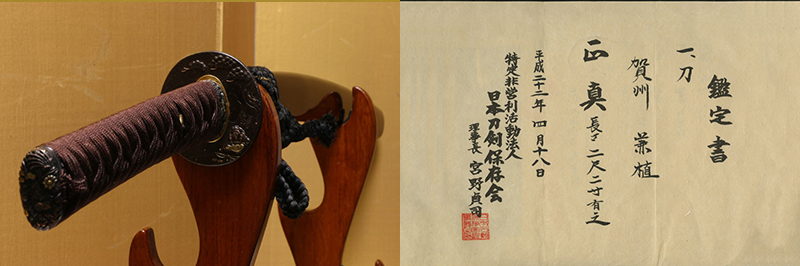 鑑定書
一、刀
賀州 兼植
正真 長サ 二尺二寸有之
平成二十二年 四月十八日
特定非営利活動法人
日本刀剣保存会
理事長 宮野貞司